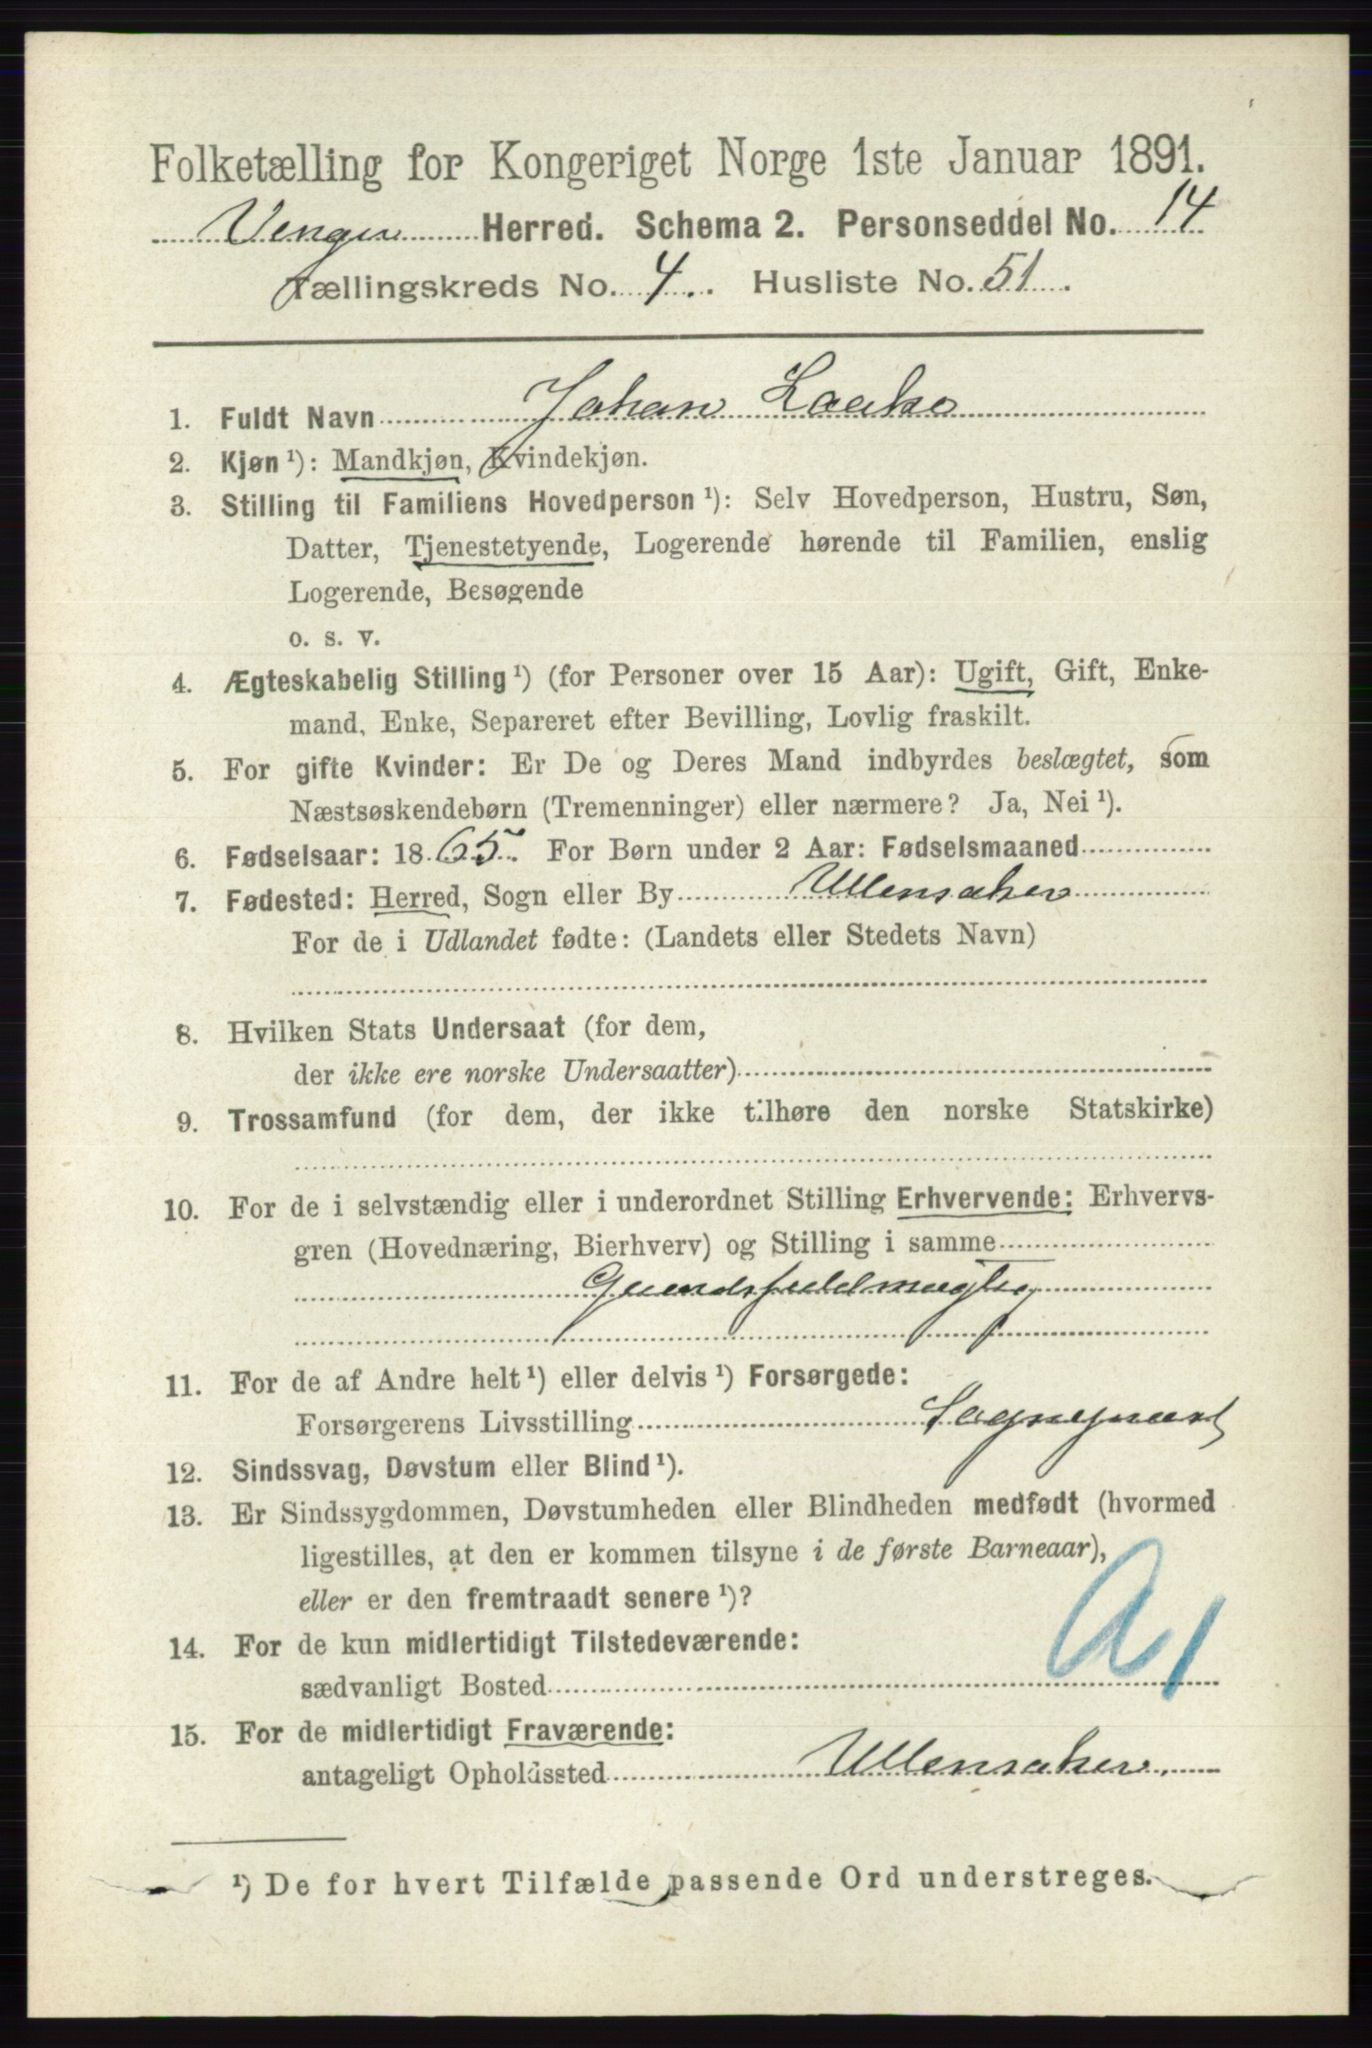 Folketælling for Kongeriget Norge 1ste Januar 1891.
Herred. Schema 2. Personseddel No. 14
Tællingskreds No. 4. Husliste No. 51.
1. Fuldt Navn Johan Laake
2. Kjøn ¹): Mandkjøn, Kvindekjøn.
3. Stilling til Familiens Hovedperson ¹): Selv Hovedperson, Hustru, Søn,
Datter, Tjenestetyende, Logerende hørende til Familien, enslig
Logerende, Besøgende
o. s. v.
4. Ægteskabelig Stilling ¹) (for Personer over 15 Aar): Ugift, Gift, Enke-
mand, Enke, Separeret efter Bevilling, Lovlig fraskilt.
5. For gifte Kvinder: Er De og Deres Mand indbyrdes beslægtet, som
Næstsøskendebørn (Tremenninger) eller nærmere? Ja, Nei ¹).
6. Fødselsaar: 1865. For Børn under 2 Aar: Fødselsmaaned
7. Fødested: Herred, Sogn eller By Ullensaker
For de i Udlandet fødte: (Landets eller Stedets Navn)
8. Hvilken Stats Undersaat (for dem,
der ikke ere norske Undersaatter)
9. Trossamfund (for dem, der ikke tilhøre den norske Statskirke)
10. For de i selvstændig eller i underordnet Stilling Erhvervende: Erhvervs-
gren (Hovednæring, Bierhverv) og Stilling i samme
11. For de af Andre helt ¹) eller delvis ¹) Forsørgede:
Forsørgerens Livsstilling
12. Sindssvag, Døvstum eller Blind ¹).
13. Er Sindssygdommen, Døvstumheden eller Blindheden medfødt (hvormed
ligestilles, at den er kommen tilsyne i de første Barneaar),
eller er den fremtraadt senere ¹)?
14. For de kun midlertidigt Tilstedeværende:
sædvanligt Bosted
15. For de midlertidigt Fraværende:
antageligt Opholdssted Ullensaker.
¹) De for hvert Tilfælde passende Ord understreges.